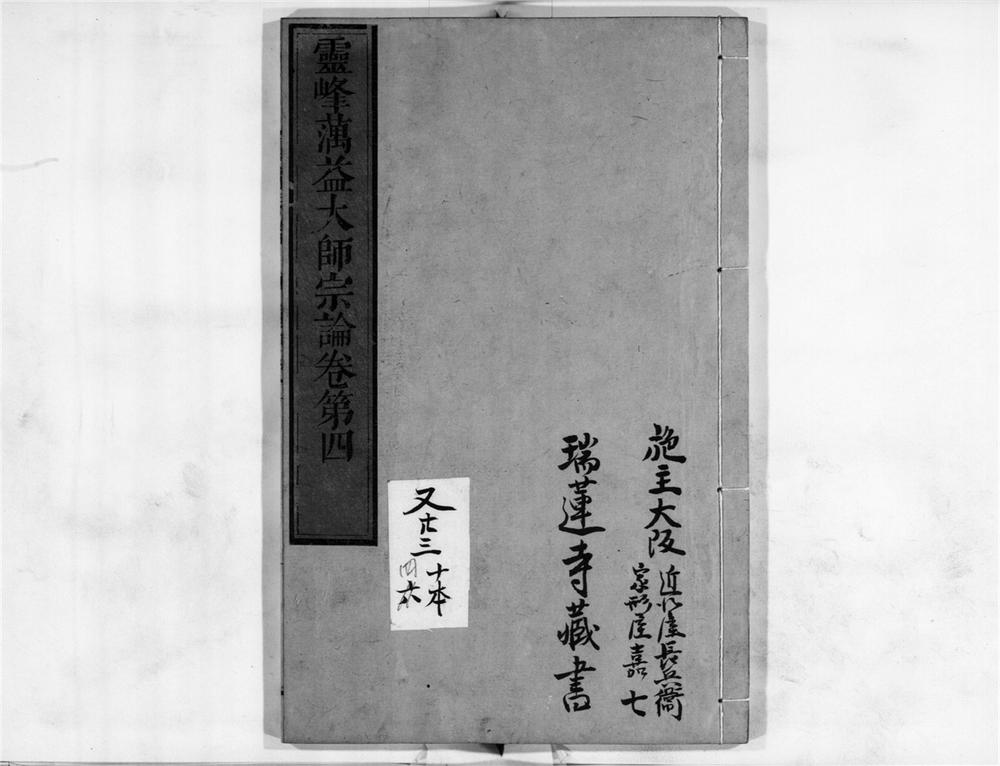 施主大阪
近江屋長兵衞
家形屋嘉七
瑞蓮寺藏書
靈峰蕅益大師宗論卷第四
又廿三
十本
四本